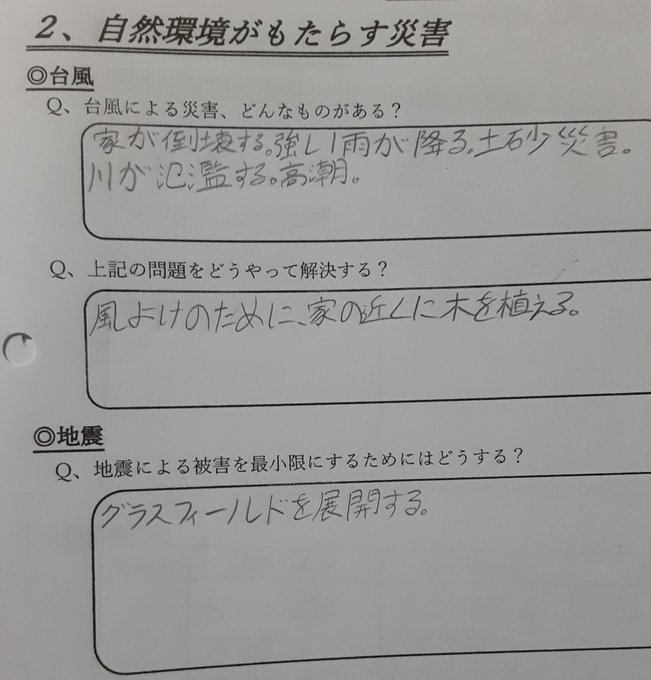 2、自然環境がもたらす災害
◎台風
Q、台風による災害、どんなものがある？
家が倒壊する。強い雨が降る。土砂災害。
川が氾濫する。高潮。
Q、上記の問題をどうやって解決する？
風よけのために、家の近くに木を植える。
◎地震
Q、地震による被害を最小限にするためにはどうする？
グラスフィールドを展開する。